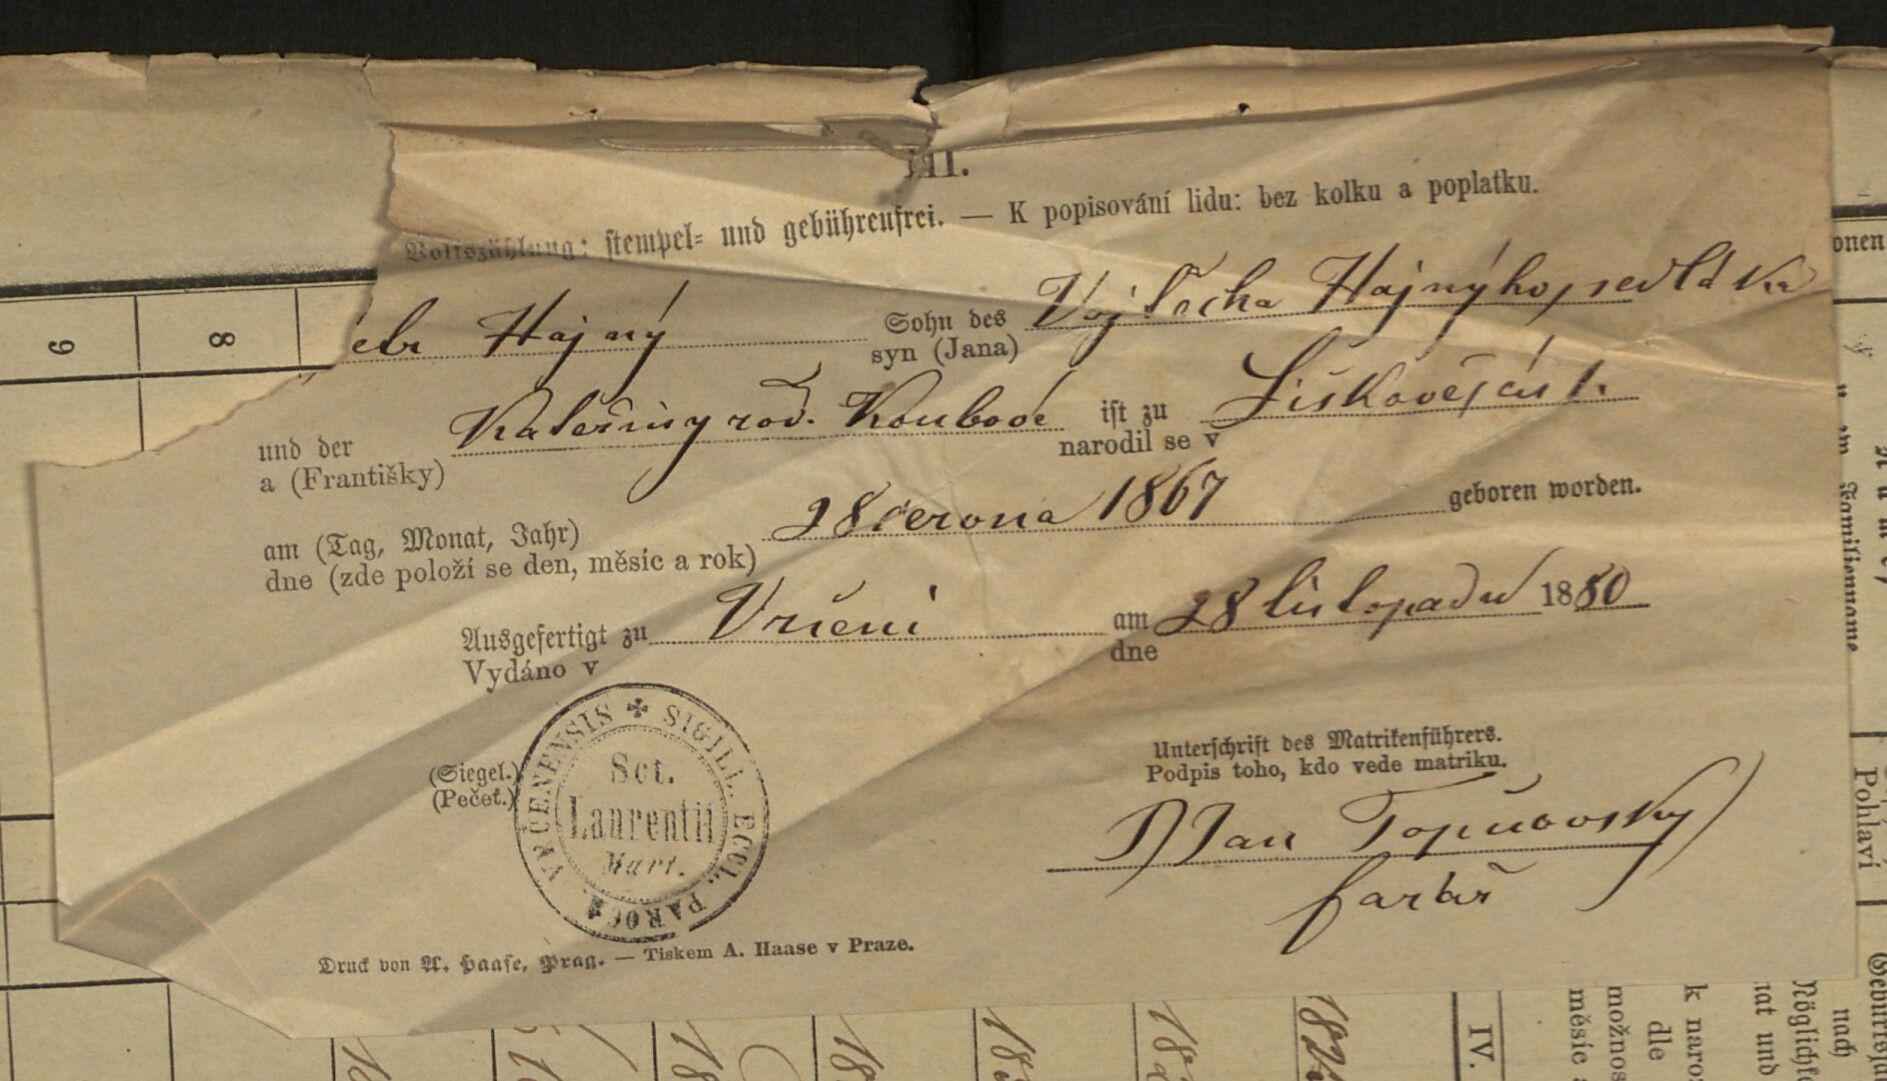 III.
Volkszählung: stempel= und gebührenfrei. — K popisování lidu: bez kolku a poplatku.
etr Hajný Sohn des Vojtěcha Hajnýho, sedláka
syn (Jana)
und der Kateřiny rod. Koubové ist zu Liškovej čís 1.
a (Františky) narodil se v
am (Tag, Monat, Jahr) 28 června 1867 geboren worden.
dne (zde položí se den, měsíc a rok)
Ausgefertigt zu Vrčeni am 28 listopadu 1880
Vydáno v dne
(Siegel.)
(Pečeť.)
SIGILL. ECCL. PAROCH. VRČENENSIS
Sct.
Laurentii
Mart.
Unterschrift des Matrikenführers.
Podpis toho, kdo vede matriku.
Jan
farář
Druck von A. Haase, Prag. — Tiskem A. Haase v Praze.
6
8
onen
Familienname
Pohlaví
IV.
k naro
dle
možnos
měsíc
nach
Möglichk
nat und